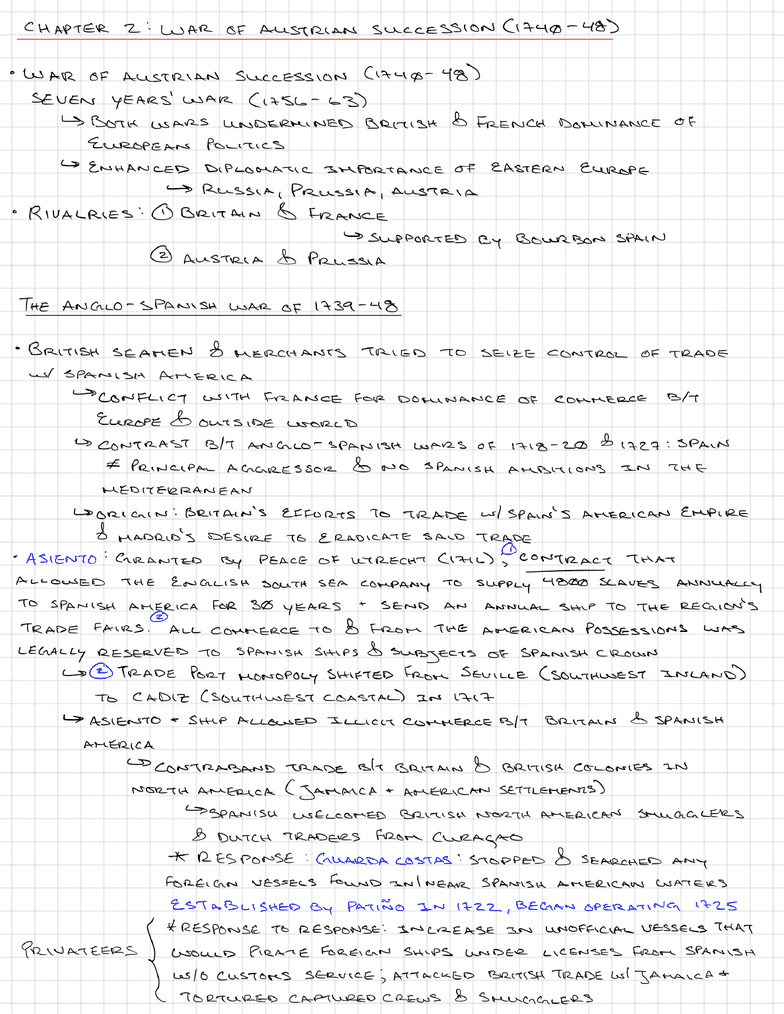 CHAPTER 2: WAR OF AUSTRIAN SUCCESSION (1740-48)
• WAR OF AUSTRIAN SUCCESSION (1740-48)
SEVEN YEARS' WAR (1756-63)
↳ BOTH WARS UNDERMINED BRITISH & FRENCH DOMINANCE OF
EUROPEAN POLITICS
↳ ENHANCED DIPLOMATIC IMPORTANCE OF EASTERN EUROPE
↳ RUSSIA, PRUSSIA, AUSTRIA
• RIVALRIES: ① BRITAIN & FRANCE
↳ SUPPORTED BY BOURBON SPAIN
② AUSTRIA & PRUSSIA
THE ANGLO-SPANISH WAR OF 1739-48
• BRITISH SEAMEN & MERCHANTS TRIED TO SEIZE CONTROL OF TRADE
W/ SPANISH AMERICA
↳ CONFLICT WITH FRANCE FOR DOMINANCE OF COMMERCE B/T
EUROPE & OUTSIDE WORLD
↳ CONTRAST B/T ANGLO-SPANISH WARS OF 1718-20 & 1727: SPAIN
≠ PRINCIPAL AGGRESSOR & NO SPANISH AMBITIONS IN THE
MEDITERRANEAN
↳ ORIGIN: BRITAIN'S EFFORTS TO TRADE W/ SPAIN'S AMERICAN EMPIRE
& MADRID'S DESIRE TO ERADICATE SAID TRADE
• ASIENTO: GRANTED BY PEACE OF UTRECHT (1716); ① CONTRACT THAT
ALLOWED THE ENGLISH SOUTH SEA COMPANY TO SUPPLY 4800 SLAVES ANNUALLY
TO SPANISH AMERICA FOR 30 YEARS + SEND AN ANNUAL SHIP TO THE REGION'S
TRADE FAIRS. ② ALL COMMERCE TO & FROM THE AMERICAN POSSESSIONS WAS
LEGALLY RESERVED TO SPANISH SHIPS & SUBJECTS OF SPANISH CROWN
↳ ② TRADE PORT MONOPOLY SHIFTED FROM SEVILLE (SOUTHWEST INLAND)
TO CADIZ (SOUTHWEST COASTAL) IN 1717
↳ ASIENTO + SHIP ALLOWED ILLICIT COMMERCE B/T BRITAIN & SPANISH
AMERICA
↳ CONTRABAND TRADE B/T BRITAIN & BRITISH COLONIES IN
NORTH AMERICA (JAMAICA + AMERICAN SETTLEMENTS)
↳ SPANISH WELCOMED BRITISH NORTH AMERICAN SMUGGLERS
& DUTCH TRADERS FROM CURAÇAO
* RESPONSE: GUARDA COSTAS: STOPPED & SEARCHED ANY
FOREIGN VESSELS FOUND IN/NEAR SPANISH AMERICAN WATERS
ESTABLISHED BY PATIÑO IN 1722, BEGAN OPERATING 1725
* RESPONSE TO RESPONSE: INCREASE IN UNOFFICIAL VESSELS THAT
PRIVATEERS { WOULD PIRATE FOREIGN SHIPS UNDER LICENSES FROM SPANISH
W/O CUSTOMS SERVICE; ATTACKED BRITISH TRADE W/ JAMAICA +
TORTURED CAPTURED CREWS & SMUGGLERS